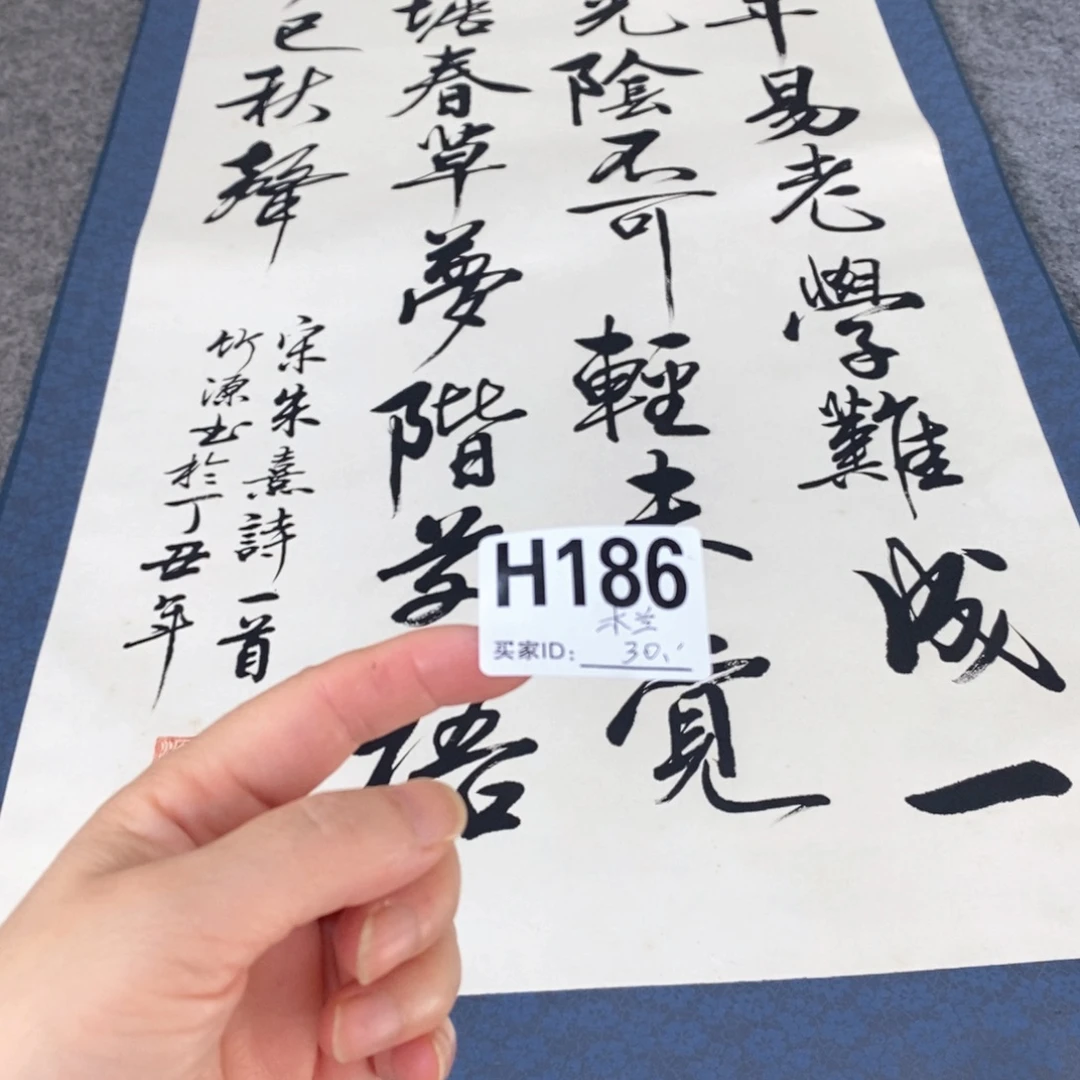 年易老學難成一
光陰不可輕未覺
塘春草夢階前梧
已秋聲
宋朱熹詩一首
竹源书於丁丑年
H186
木兰
买家ID: 30.